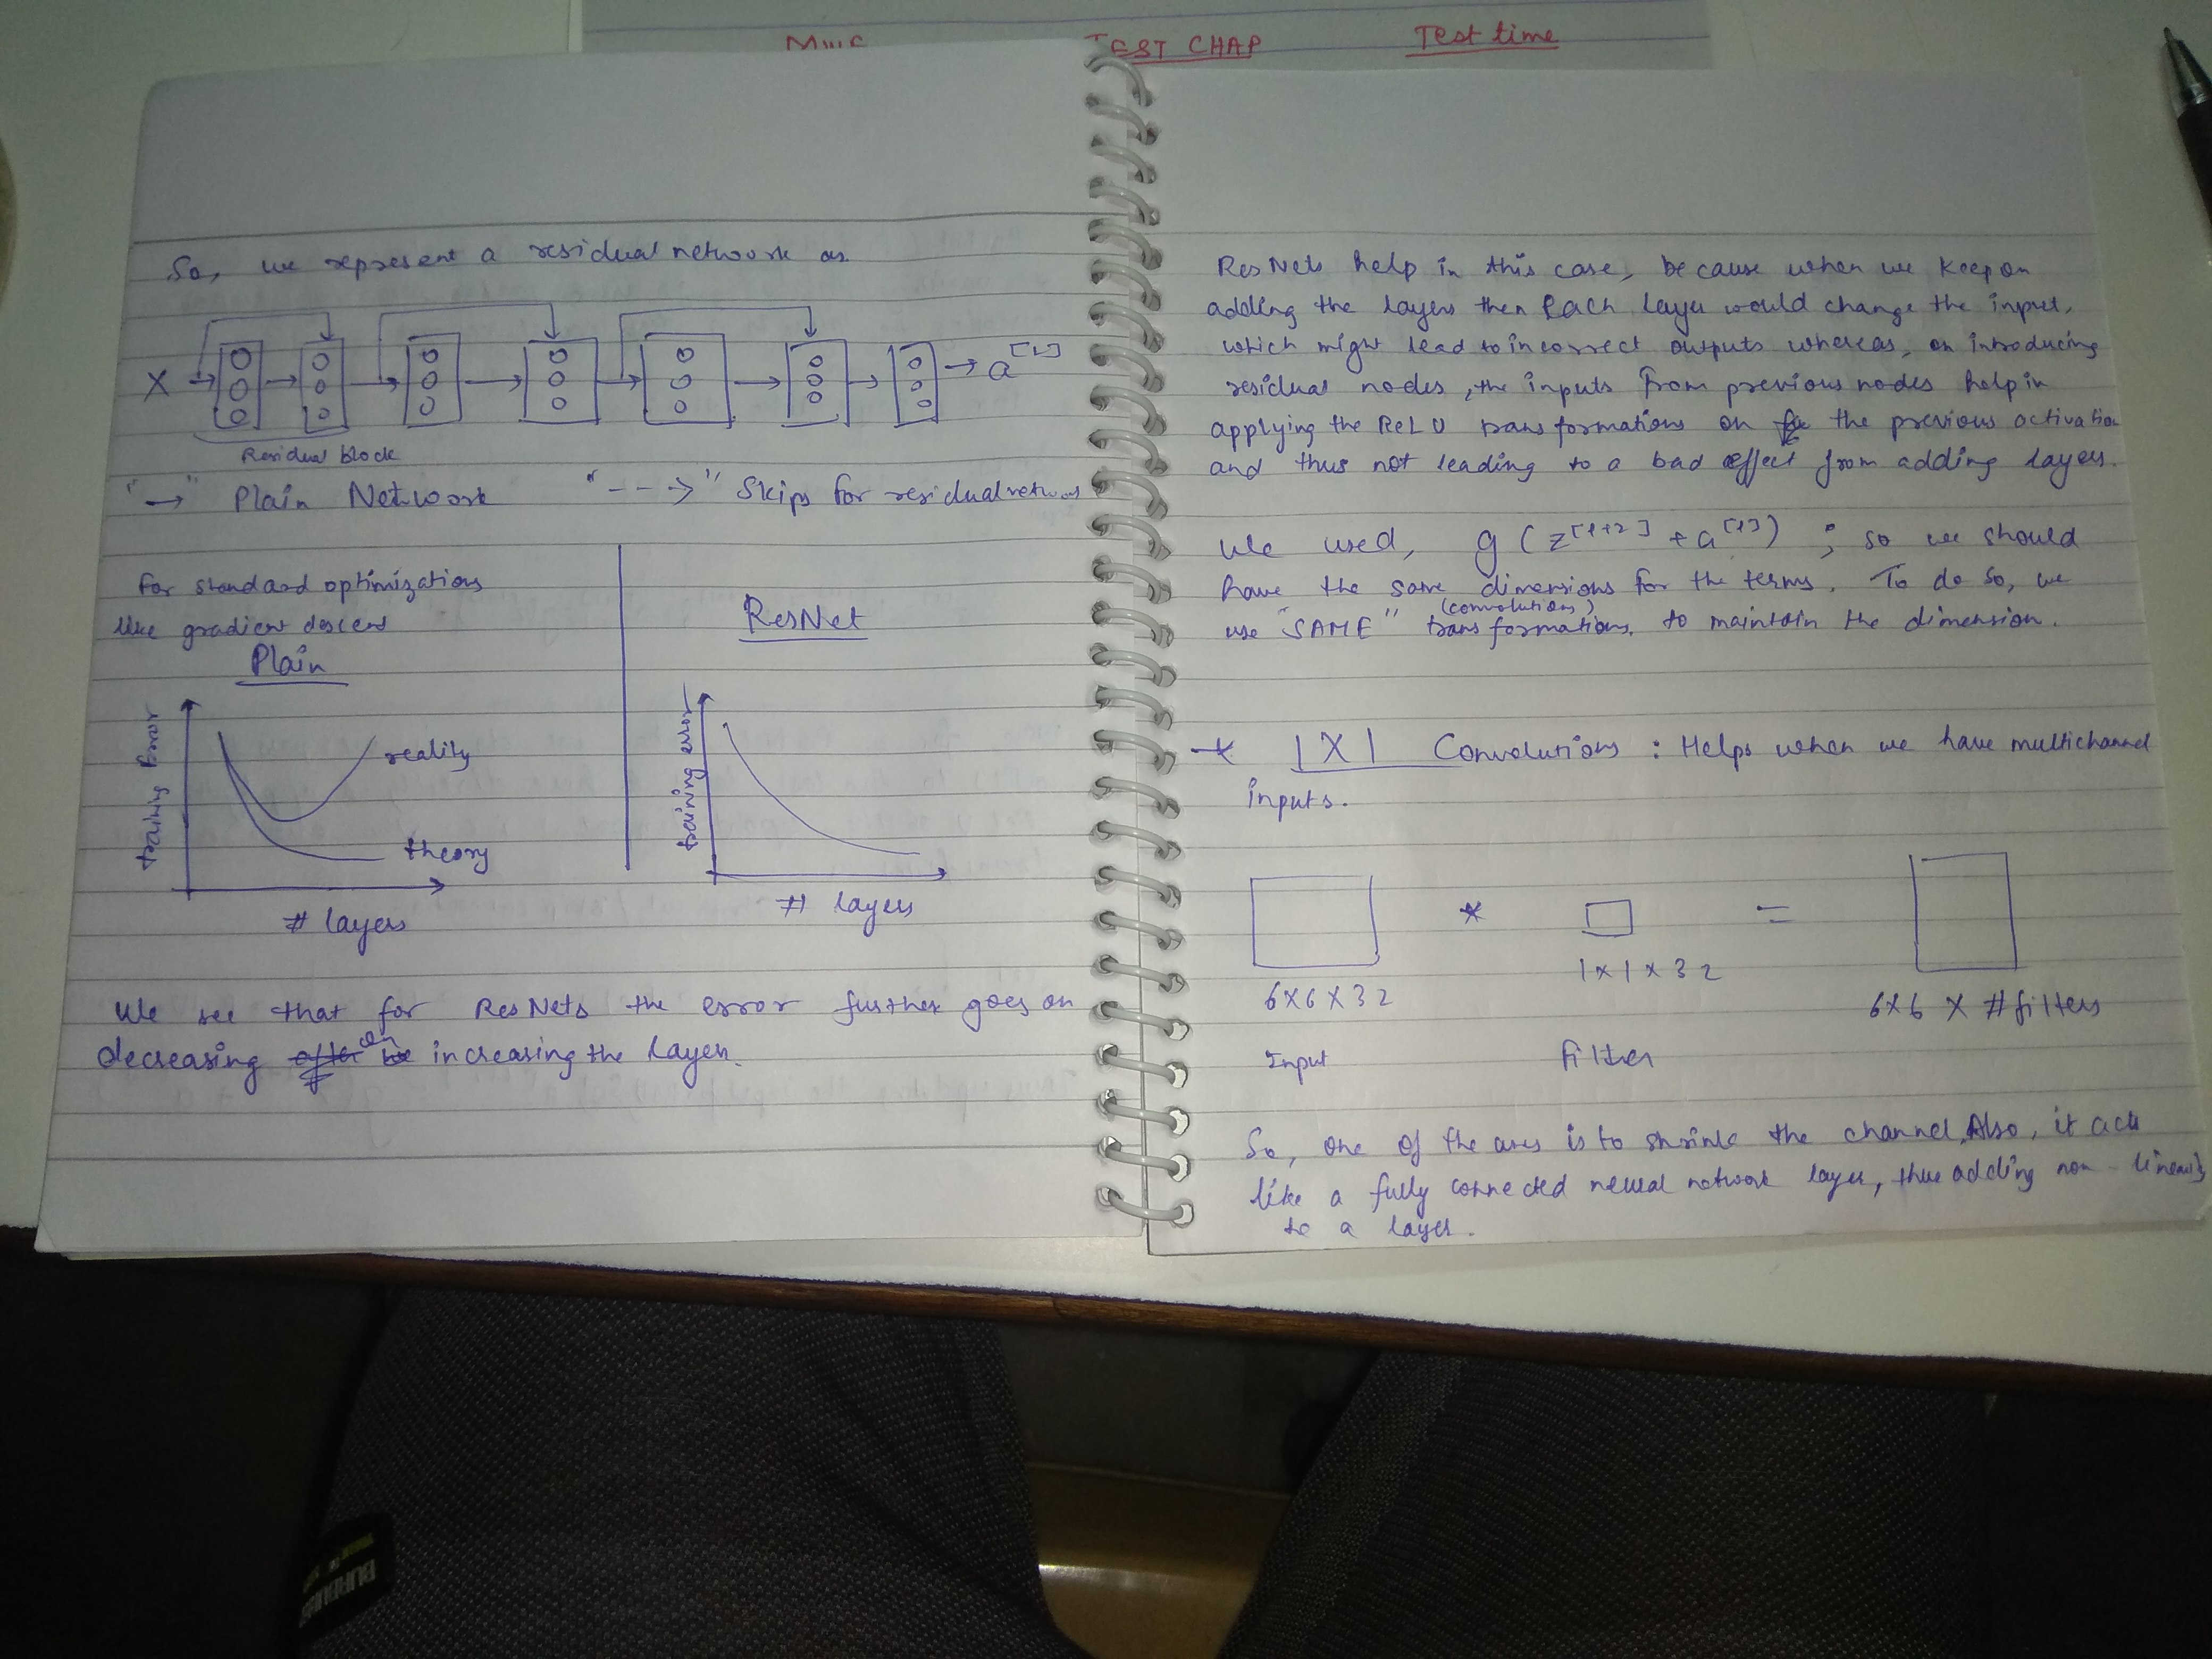 TEST CHAP
Test time
So, we represent a residual network as
X → → → → → → → a[L]
Residual block
"→" Plain Network "--->" Skips for residual network
For standard optimizations
like gradient descent
Plain
ResNet
training Error
reality
theory
# layers
training error
# layers
We see that for ResNets the error further goes on
decreasing on increasing the layers.
ResNets help in this case, because when we keep on
adding the layers then Each layer would change the input,
which might lead to incorrect outputs whereas, on introducing
residual nodes, the inputs from previous nodes help in
applying the ReLU transformations on the previous activation
and thus not leading to a bad effect from adding layers.
We used, g(z[l+2] + a[l]) ; so we should
have the same dimensions for the terms. To do so, we
use "SAME" (convolutions) transformations, to maintain the dimension.
* 1X1 Convolutions : Helps when we have multichannel
inputs.
* =
6X6X32
1x1x32
6X6 X #filters
Input
Filter
So, one of the uses is to shrink the channel, Also, it acts
like a fully connected neural network layer, thus adding non-linearity
to a layer.